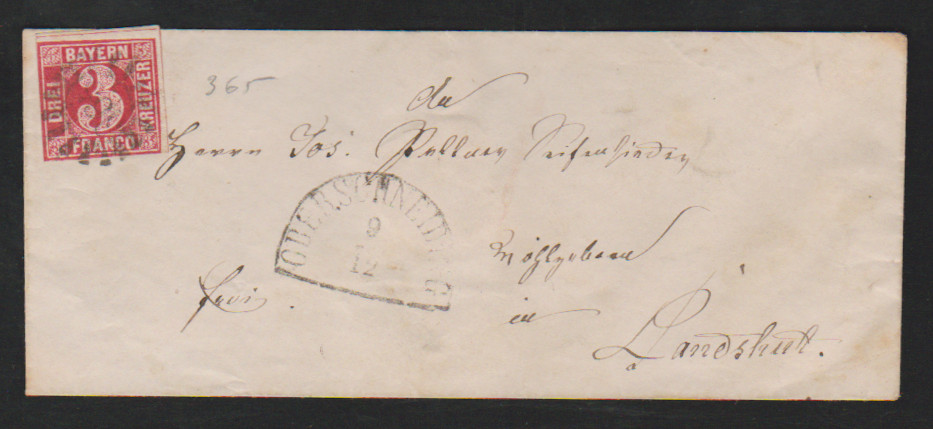 BAYERN
DREI 3 KREUZER
FRANCO
365
An
Herrn Jos. Pollner Seifensieder
OBERSCHNEIDING
9
12
Wohlgeboren
frei.
in
Landshut.